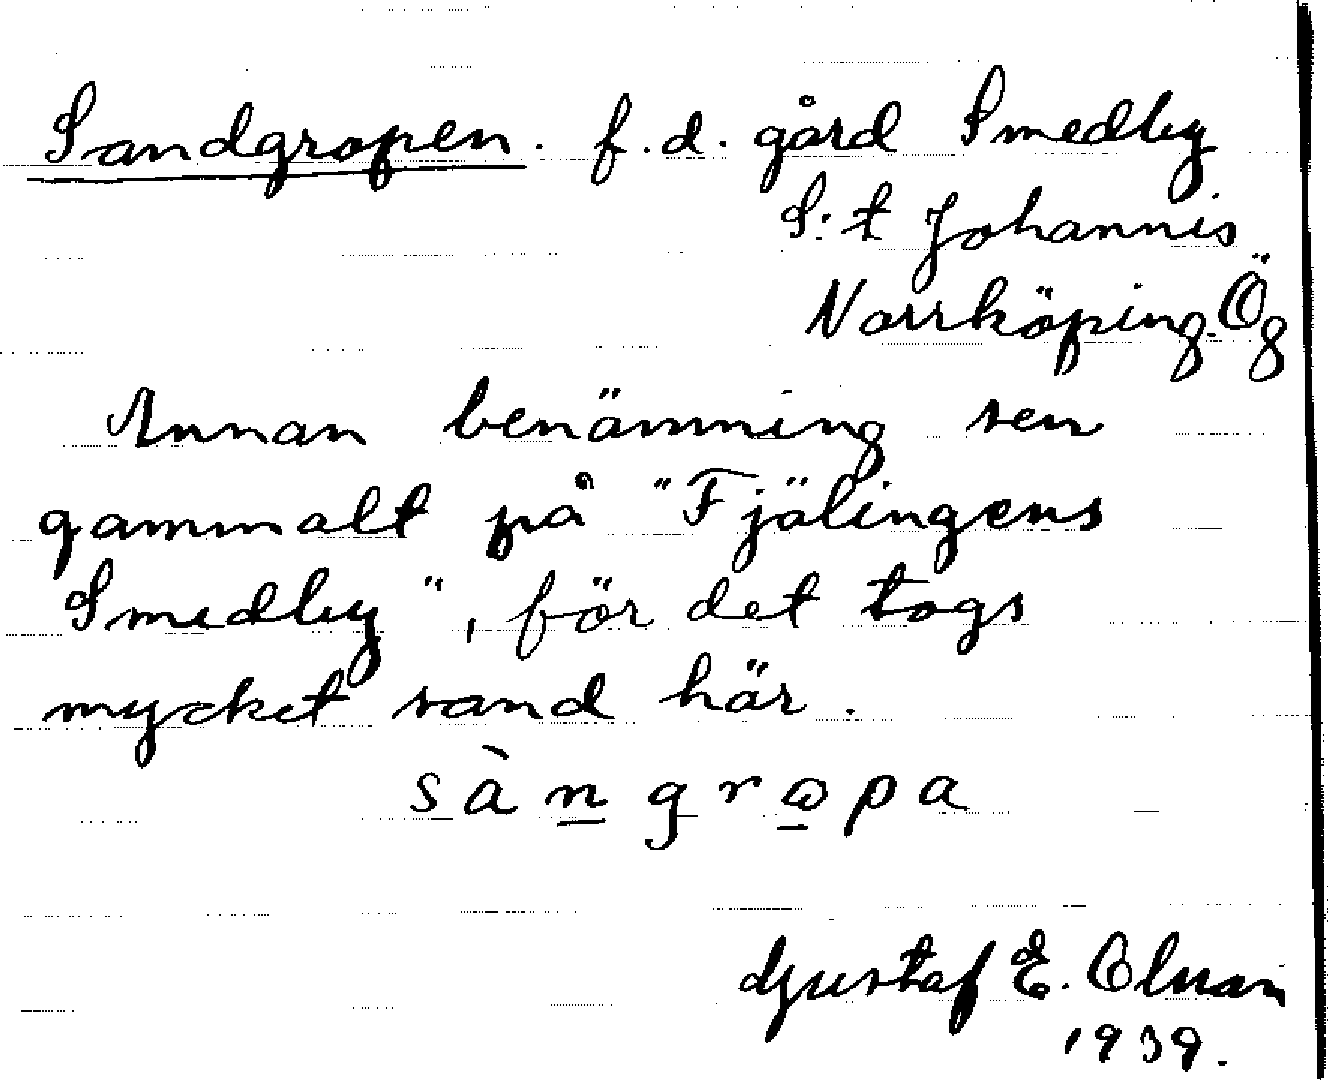 Sandgropen. f.d. gård Smedby
S:t Johannis
Norrköping. Ög
Annan benämning sen
gammalt på "Fjälingens
Smedby", för det togs
mycket sand här.
sàngrɷpa
Gustaf E. Olsson
1939.